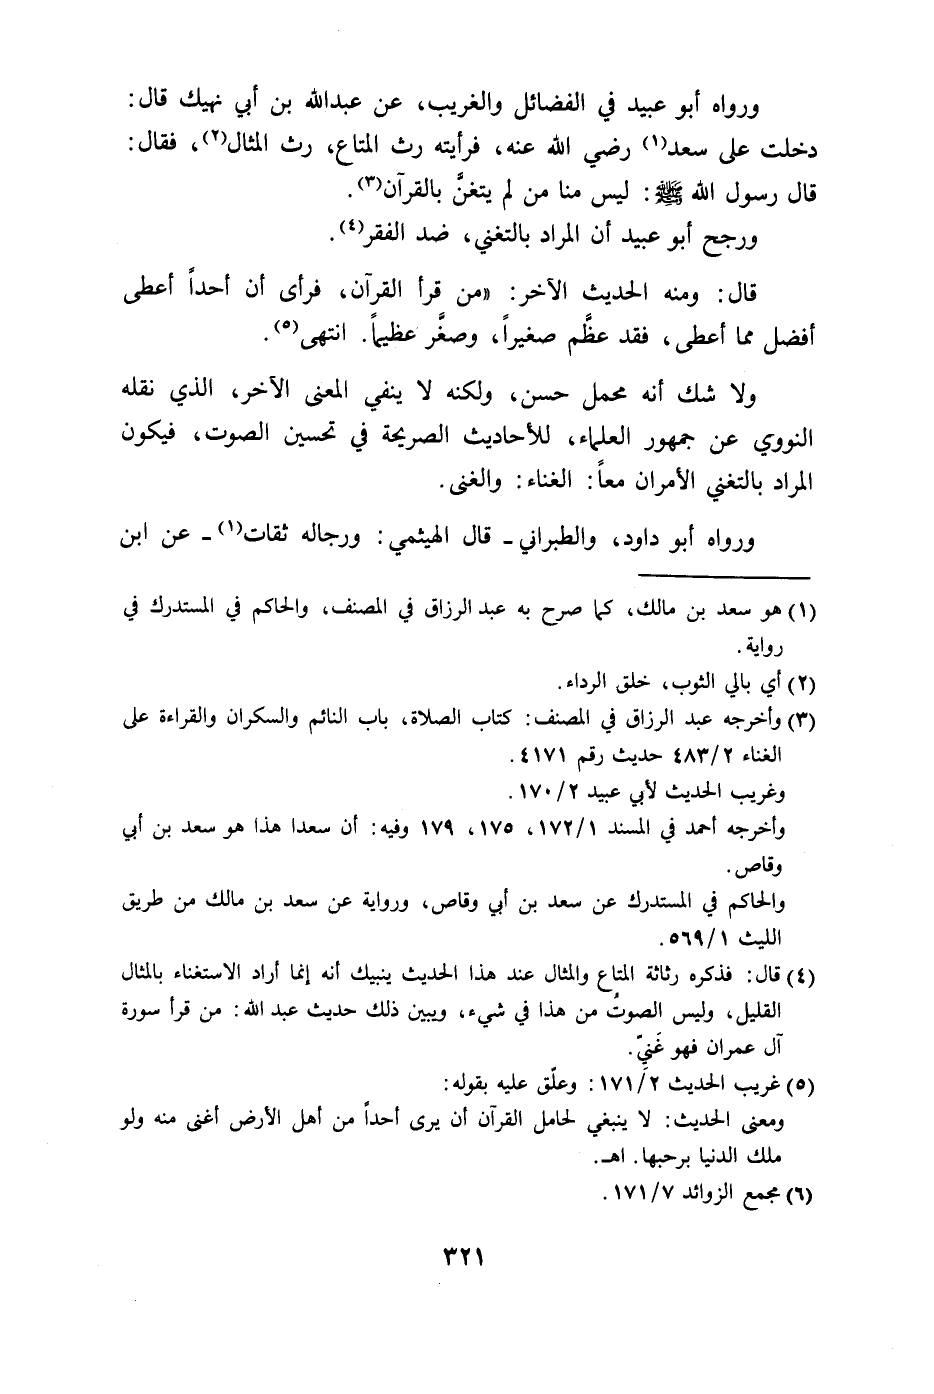 ورواه أبو عبيد في الفضائل والغريب، عن عبدالله بن أبي نهيك قال:
دخلت على سعد(١) رضي الله عنه، فرأيته رث المتاع، رث المثال(٢)، فقال:
قال رسول الله ﷺ: ليس منا من لم يتغنَّ بالقرآن(٣).
ورجح أبو عبيد أن المراد بالتغني، ضد الفقر(٤).
قال: ومنه الحديث الآخر: «من قرأ القرآن، فرأى أن أحداً أعطى
أفضل مما أعطى، فقد عظَّم صغيراً، وصغَّر عظيماً. انتهى(٥).
ولا شك أنه محمل حسن، ولكنه لا ينفي المعنى الآخر، الذي نقله
النووي عن جمهور العلماء، للأحاديث الصريحة في تحسين الصوت، فيكون
المراد بالتغني الأمران معاً: الغناء: والغنى.
ورواه أبو داود، والطبراني ـ قال الهيثمي: ورجاله ثقات(١) ـ عن ابن
(١) هو سعد بن مالك، كما صرح به عبد الرزاق في المصنف، والحاكم في المستدرك في
رواية.
(٢) أي بالي الثوب، خلق الرداء.
(٣) وأخرجه عبد الرزاق في المصنف: كتاب الصلاة، باب النائم والسكران والقراءة على
الغناء ٤٨٣/٢ حديث رقم ٤١٧١.
وغريب الحديث لأبي عبيد ١٧٠/٢.
وأخرجه أحمد في المسند ١٧٢/١، ١٧٥، ١٧٩ وفيه: أن سعدا هذا هو سعد بن أبي
وقاص.
والحاكم في المستدرك عن سعد بن أبي وقاص، ورواية عن سعد بن مالك من طريق
الليث ٥٦٩/١.
(٤) قال: فذكره رثاثة المتاع والمثال عند هذا الحديث ينبيك أنه إنما أراد الاستغناء بالمثال
القليل، وليس الصوتُ من هذا في شيء، ويبين ذلك حديث عبد الله: من قرأ سورة
آل عمران فهو غَنيّ.
(٥) غريب الحديث ١٧١/٢: وعلّق عليه بقوله:
ومعنى الحديث: لا ينبغي لحامل القرآن أن يرى أحداً من أهل الأرض أغنى منه ولو
ملك الدنيا برحبها. اهـ.
(٦) مجمع الزوائد ١٧١/٧.
٣٢١